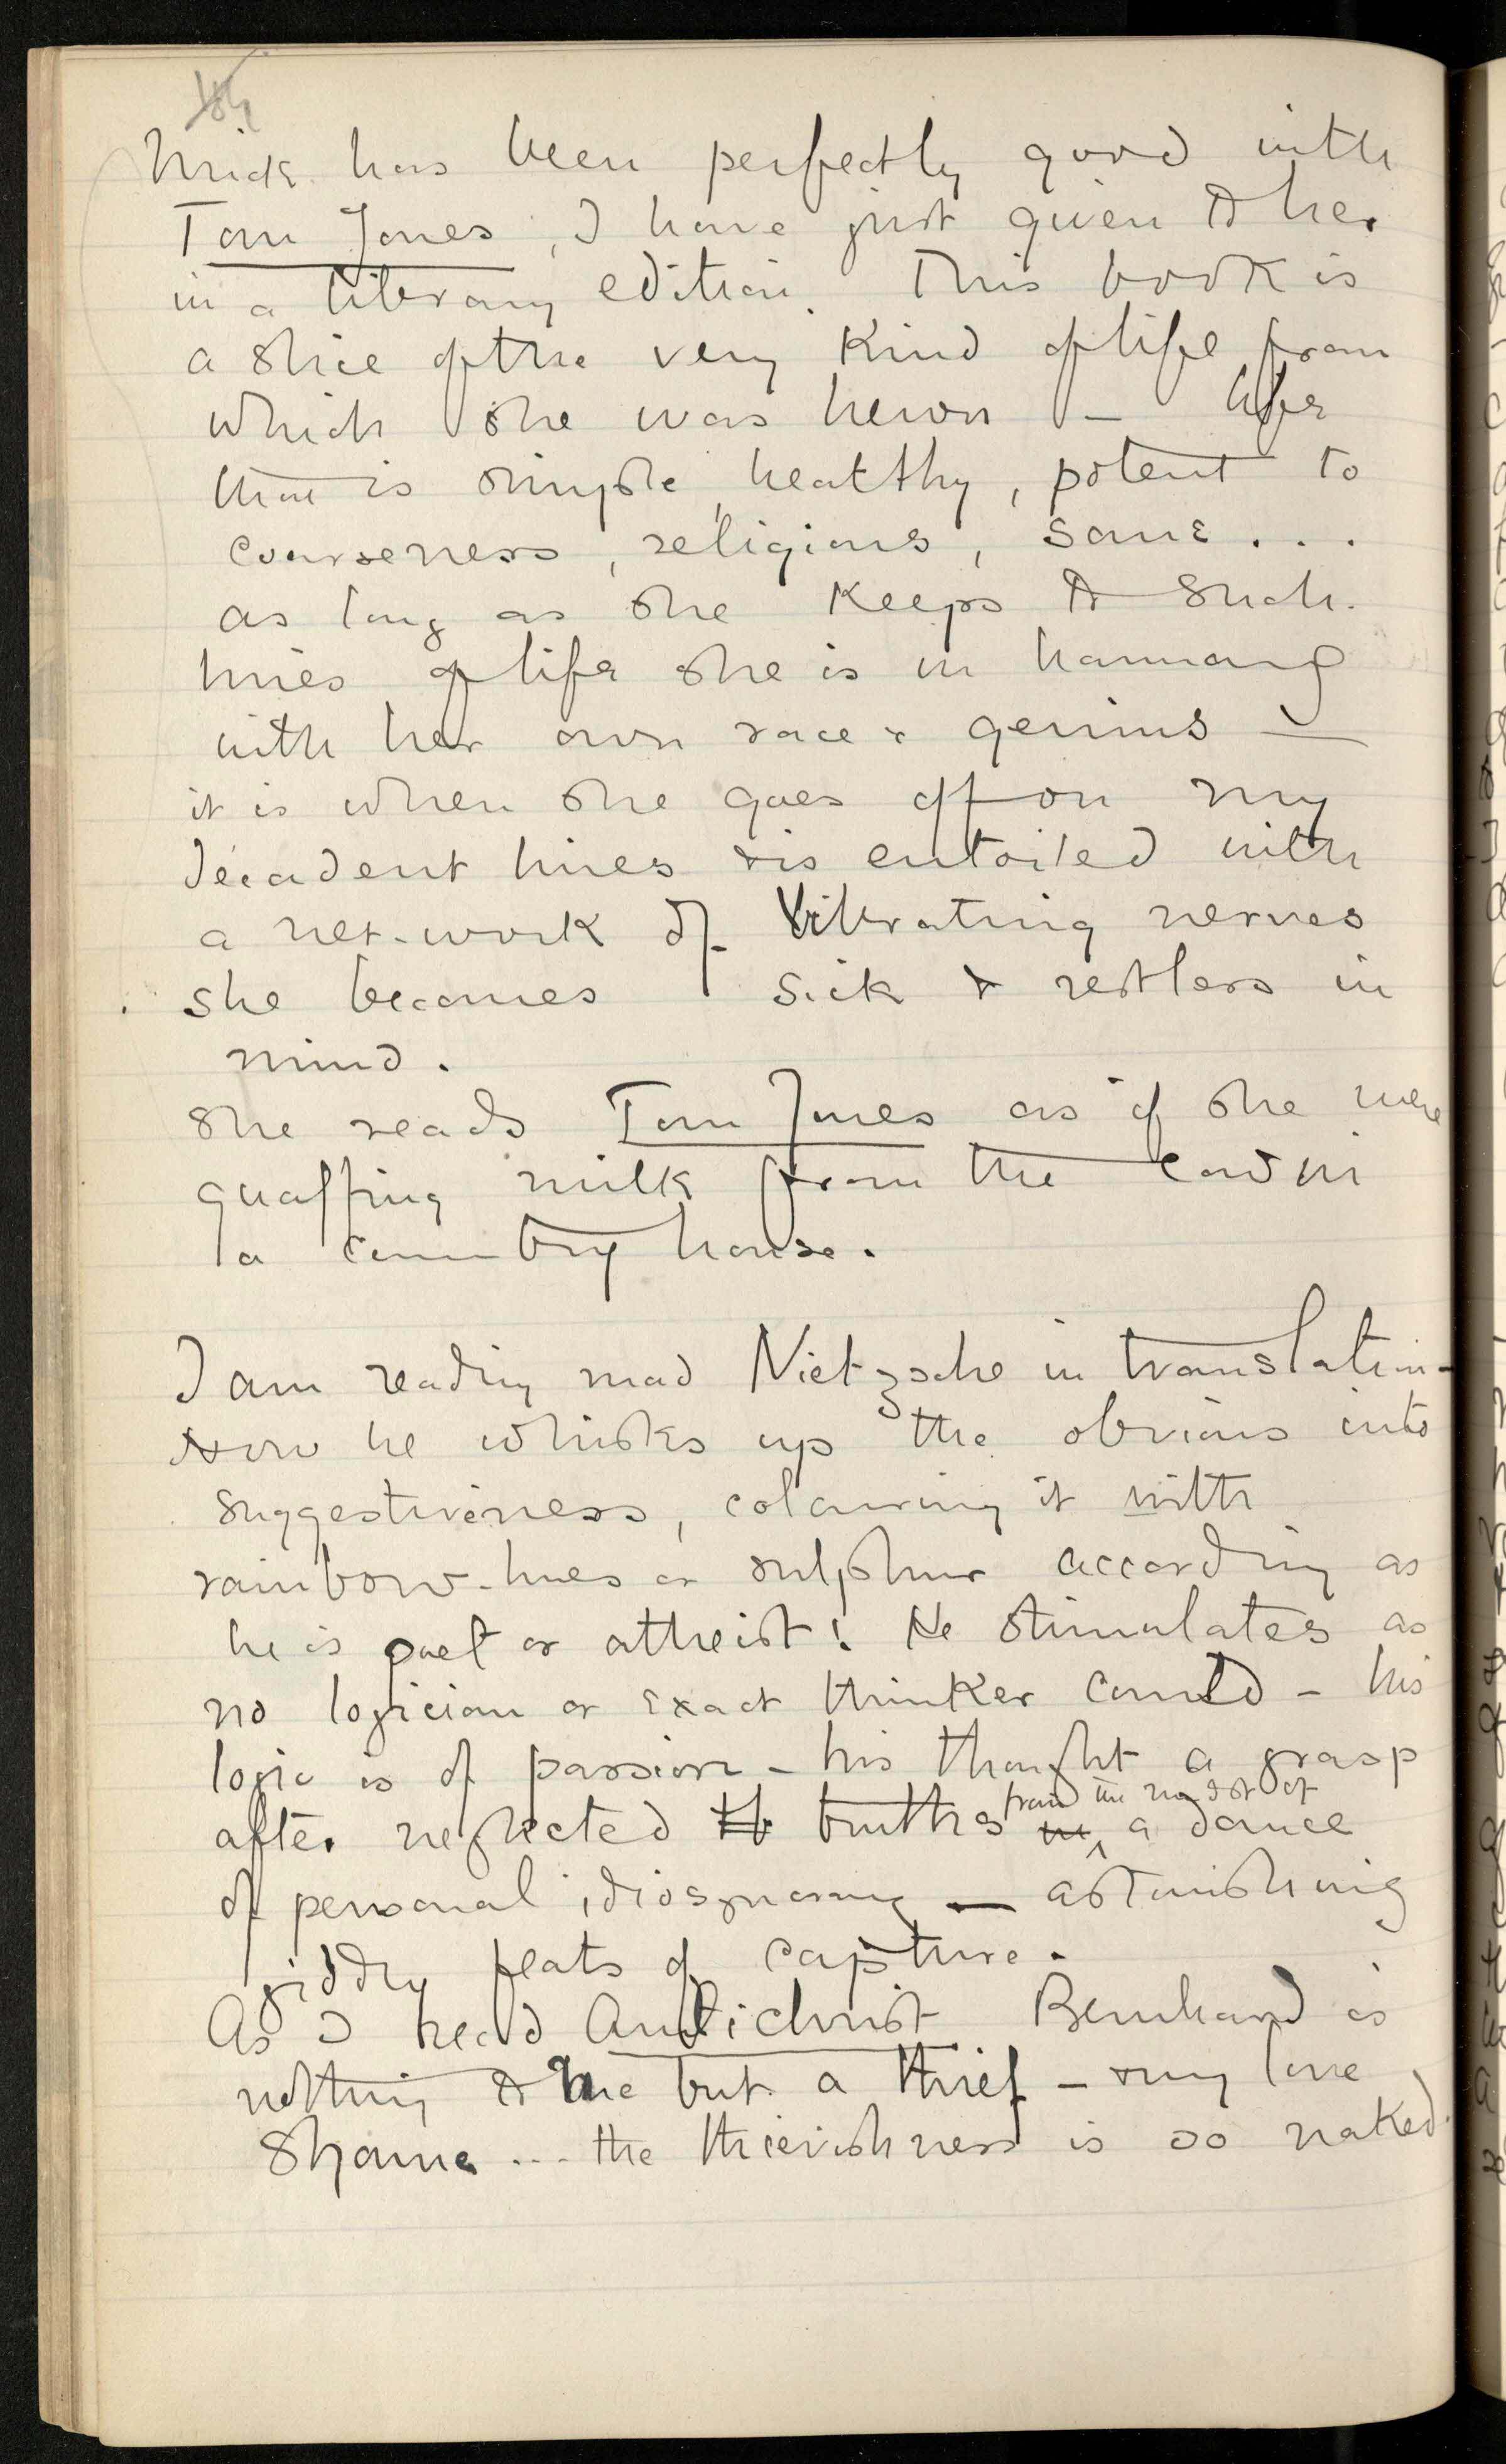 Mick has been perfectly good with
Tom Jones, I have just given to her
in a library edition. This book is
a slice of the very kind of life from
which she was hewn – life
that is simple, healthy, potent to
coarseness, religious, sane...
as long as she keeps to such
lines of life she is in harmony
with her own race & genius —
it is when she goes off on my
decadent lines & is entoiled with
a net-work of vibrating nerves
she becomes sick & restless in
mind.
She reads Tom Jones as if she were
quaffing milk from the cow in
a country house.
I am reading mad Nietzsche in translation –
How he whisks up the obvious into
suggestiveness, colouring it with
rainbow-hues or sulphur according as
he is poet or atheist! He stimulates as
no logician or exact thinker could – his
logic is of passion – his thought a grasp
after neglected th truths in from the midst of a dance
of personal idiosyncrasy — astonishing
giddy feats of capture.
As I read Antichrist Bernhard is
nothing to me but a thief – my love
Shame... the thievishness is so naked.